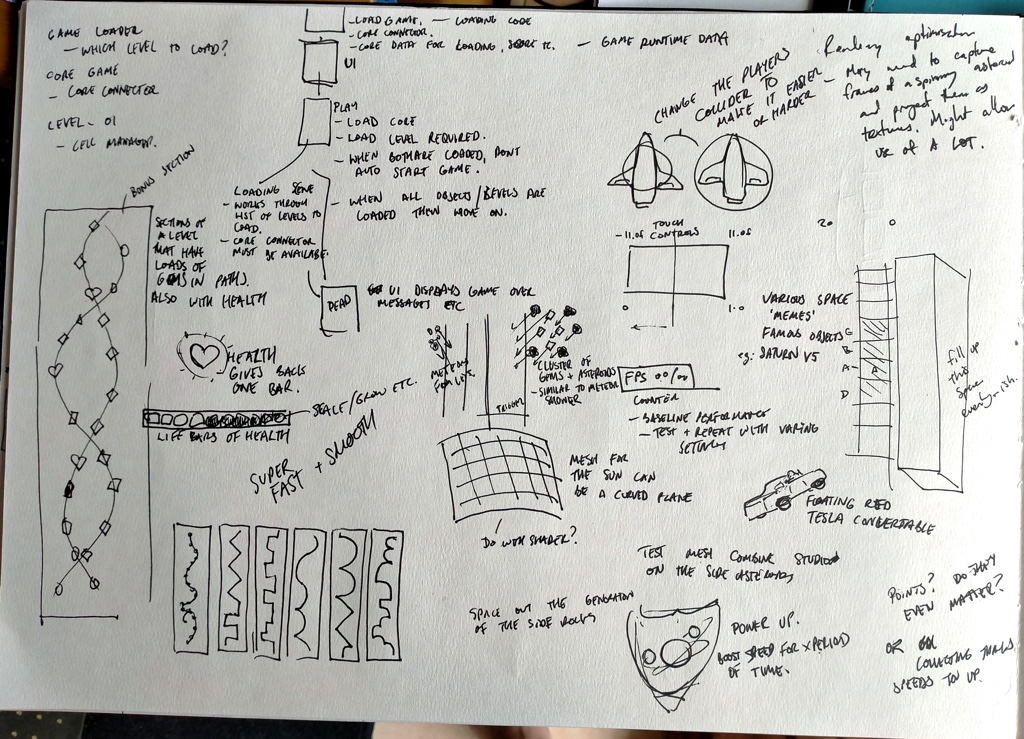 GAME LOADER
- WHICH LEVEL TO LOAD?
CORE GAME
- CORE CONNECTOR
LEVEL - 01
- CELL MANAGER.
- LOAD GAME. - LOADING CODE
- CORE CONNECTOR.
- CORE DATA FOR LOADING, SCORE TC. - GAME RUNTIME DATA
UI
PLAY
- LOAD CORE
- LOAD LEVEL REQUIRED.
- WHEN BOTH ARE LOADED, DONT
AUTO START GAME.
- WHEN ALL OBJECTS / LEVELS ARE
LOADED THEN MOVE ON.
LOADING SCENE
- WORKS THROUGH
LIST OF LEVELS TO
LOAD.
- CORE CONNECTOR
MUST BE AVAILABLE.
DEAD
UI DISPLAYS GAME OVER
MESSAGES ETC
CHANGE THE PLAYERS
COLLIDER TO
MAKE IT EASIER
OR HARDER
Rendering optimisation
- May need to capture
frames of a spinning asteroid
and project them as
textures. Might allow
use of A LOT.
BONUS SECTION
SECTIONS OF
A LEVEL
THAT HAVE
LOADS OF
GEMS IN PATHS.
ALSO WITH HEALTH
HEALTH
GIVES BACK
ONE BAR.
SCALE/GROW ETC.
LIFE BARS OF HEALTH
SUPER
FAST + SMOOTH
TOUCH
CONTROLS
-11.0f
11.0f
0
1.0
20
0
VARIOUS SPACE
'MEMES'
FAMOUS OBJECTS
eg: SATURN V5
C
B
A
D
fill up
this
space
evenly-ish.
METEORS
TRIGGER
CLUSTER OF
GEMS + ASTEROIDS
- SIMILAR TO METEOR
SHOWER
FPS 00/00
COUNTER
- BASELINE PERFORMANCE
- TEST + REPEAT WITH VARYING
SETTINGS
MESH FOR
THE SUN CAN
BE A CURVED PLANE
DO WITH SHADER?
FLOATING RED
TESLA CONVERTABLE
TEST MESH COMBINE STUDIO
ON THE SIDE ASTEROIDS
SPACE OUT THE GENERATION
OF THE SIDE ROCKS
POWER UP.
BOOST SPEED FOR X PERIOD
OF TIME.
POINTS? DO THEY
EVEN MATTER?
OR
COLLECTING THINGS
SPEEDS YOU UP.